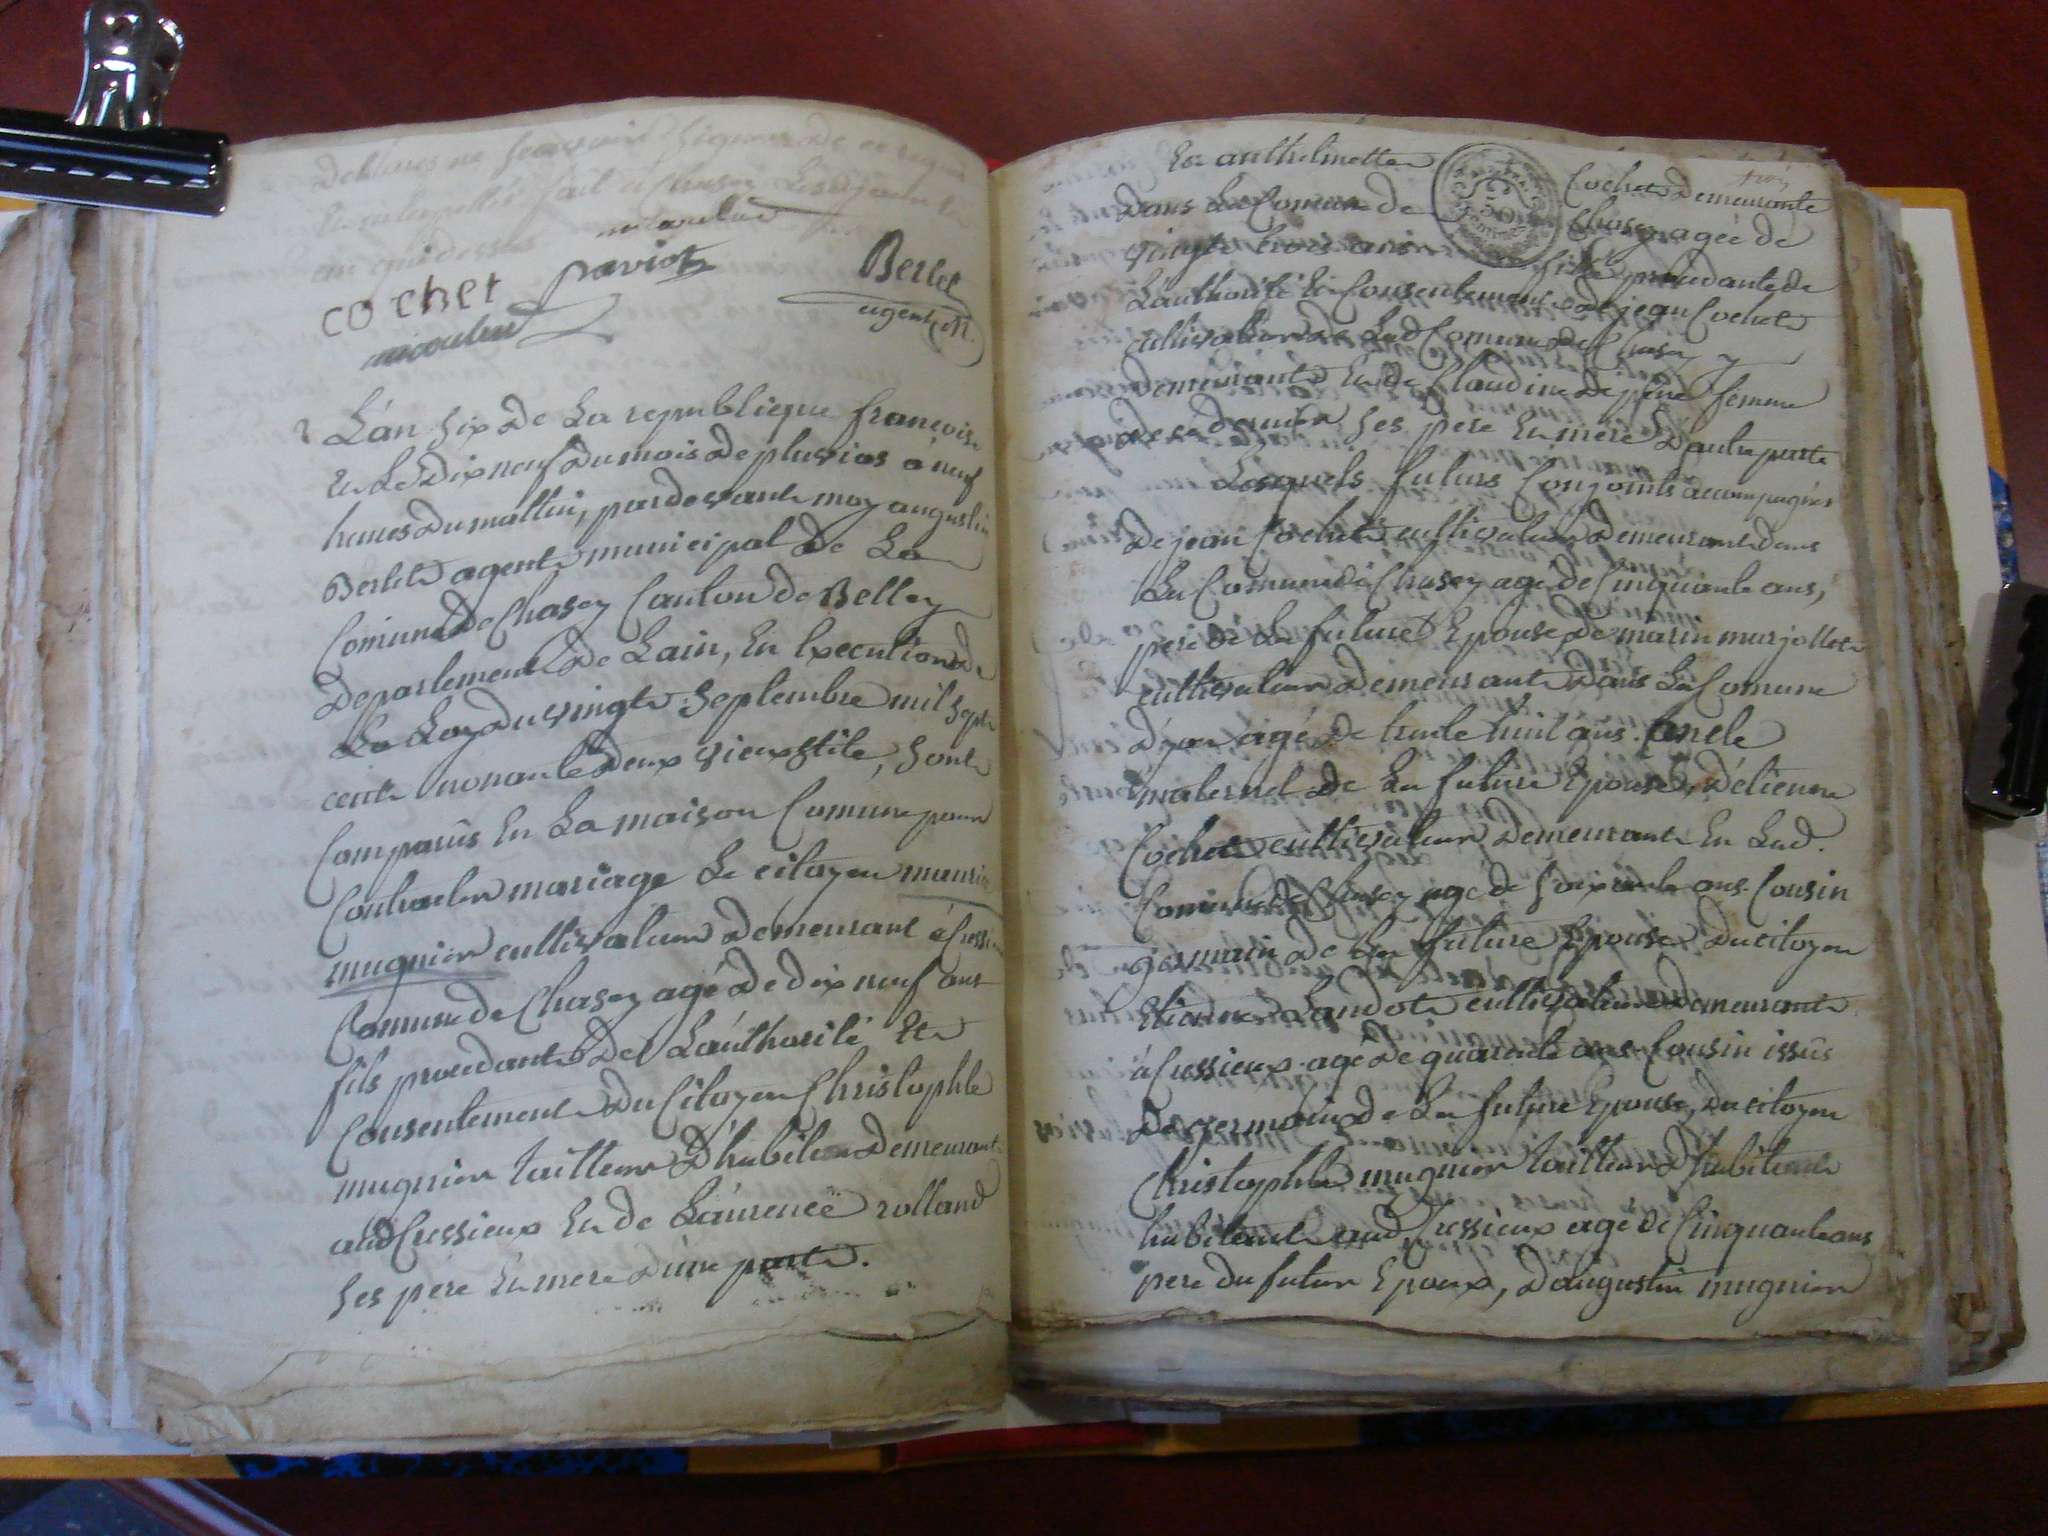 Declares ne scavoir signer de ce requis
an que dessus
cochet paviot Berlet
agent M.
2 L'an six de La republicque françoise
Et Le dix neuf du mois de pluvios a neuf
heures du mattin, pardevant moy augustin
Berlet agent municipal de La
Comune de Chasey Canton de Belley
Departement de Lain, En Execution de
La Loy du vingt Septembre mil Sept
cent nonante deux vieux stile, Sont
Comparus En La maison Comune pour
Contracter mariage Le citoyen maurice
mugnier cultivateur demeurant à Cressieux
Comune de Chasey agé de dix neuf ans
fils procedant de L'authorité Et
Consentement du Citoyen Christophle
mugnier tailleur d'habit demeurant
aud Cressieux Et de Laurence rolland
Ses père Et mere d'une part.
Et anthelmette Cochet demeurante
dans La Comune de Chasey agée de
vingt trois ans fille procedante de
L'authorité Et Consentement de jean Cochet
cultivateur de Lad Comune de Chasey y
demeurant Et de Claudine femme
de ce dernier Ses père Et mere d'autre part
Lesquels futurs Conjoints acompagnés
de jean Cochet cultivateur demeurant dans
La Comune de Chasey agé de Cinquante ans,
père de La future Epouse, de marin marjollet
cultivateur demeurant dans La Comune
agé de trente huit ans oncle
maternel de La future Epouse, d'etienne
Cochet cultivateur demeurant En Lad.
Comune de Chasey agé de Soixante ans Cousin
germain de La future Epouse, du citoyen
Etienne Landot cultivateur demeurant
à Cressieux agé de quarente ans Cousin issûs
de germain de La future Epouse, du citoyen
Christophle mugnier tailleur d'habit
habitant aud Cressieux agé de Cinquante ans
pere du futur Epoux, d'augustin mugnier